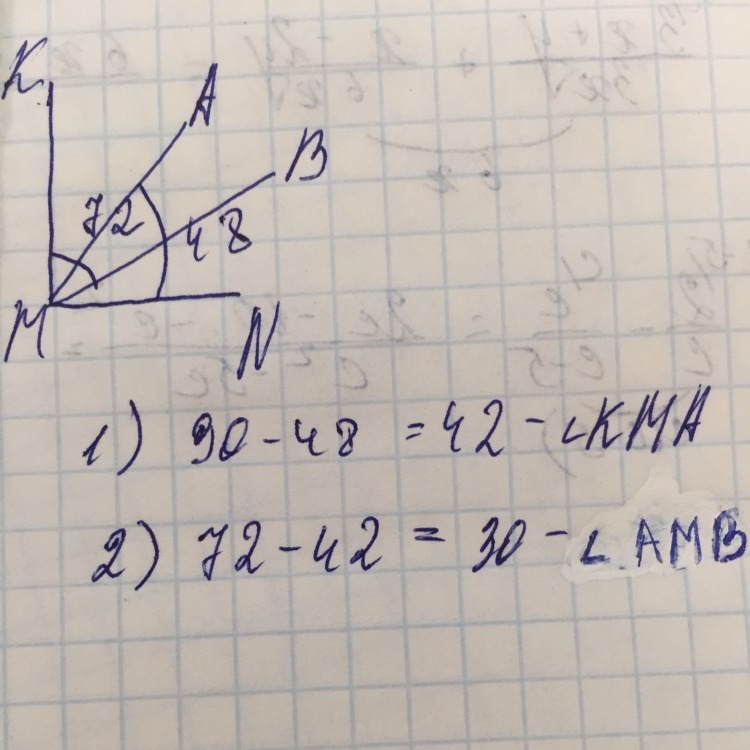 K
A
B
72
48
M
N
1) 90 - 48 = 42 - ∠KMA
2) 72 - 42 = 30 - ∠AMB